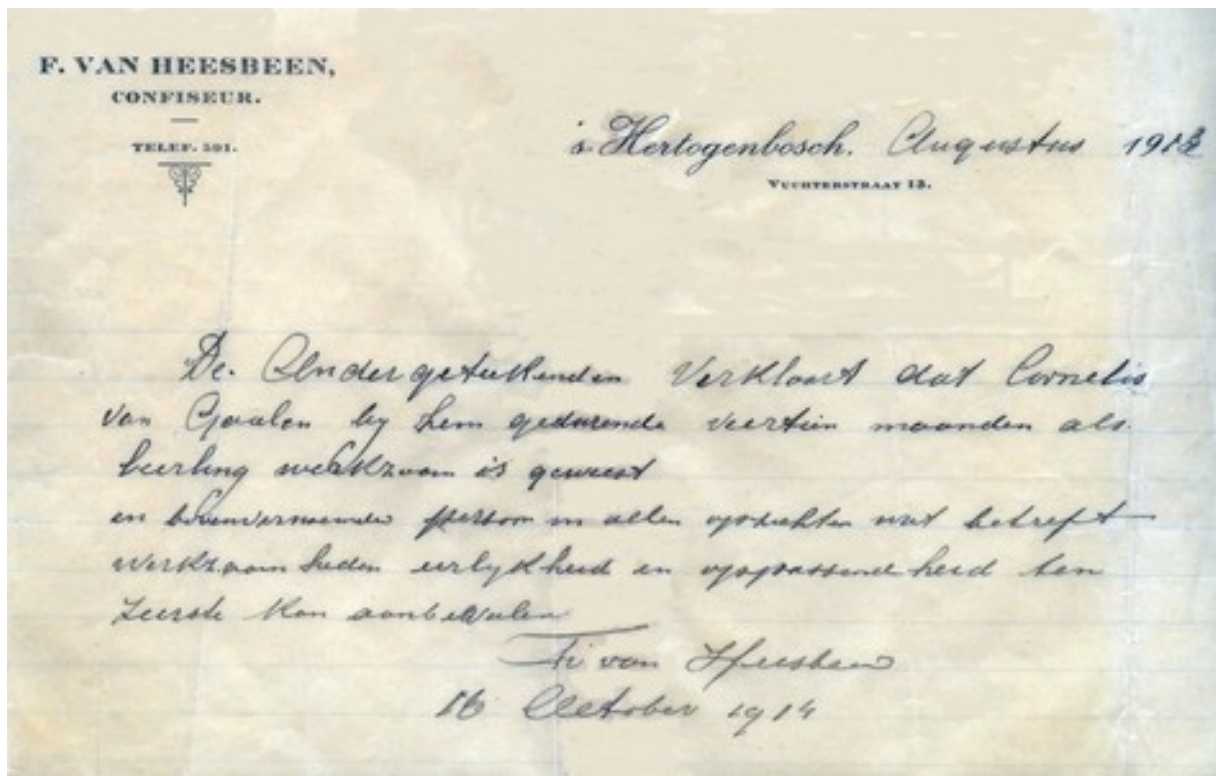 F. VAN HEESBEEN,
CONFISEUR.
TELEF. 501.
's Hertogenbosch. Augustus 1913
VUCHTERSTRAAT 13.
De Ondergetekenden Verklaart dat Cornelis
van Gaalen by hem gedurende veertien maanden als
leerling werkzaam is geweest
en bovenvernoemde persoon in allen opzichten wat betreft
werkzaamheden eerlykheid en oppassendheid ten
zeerste kan aanbevelen
F. van Heesbeen
16 October 1914